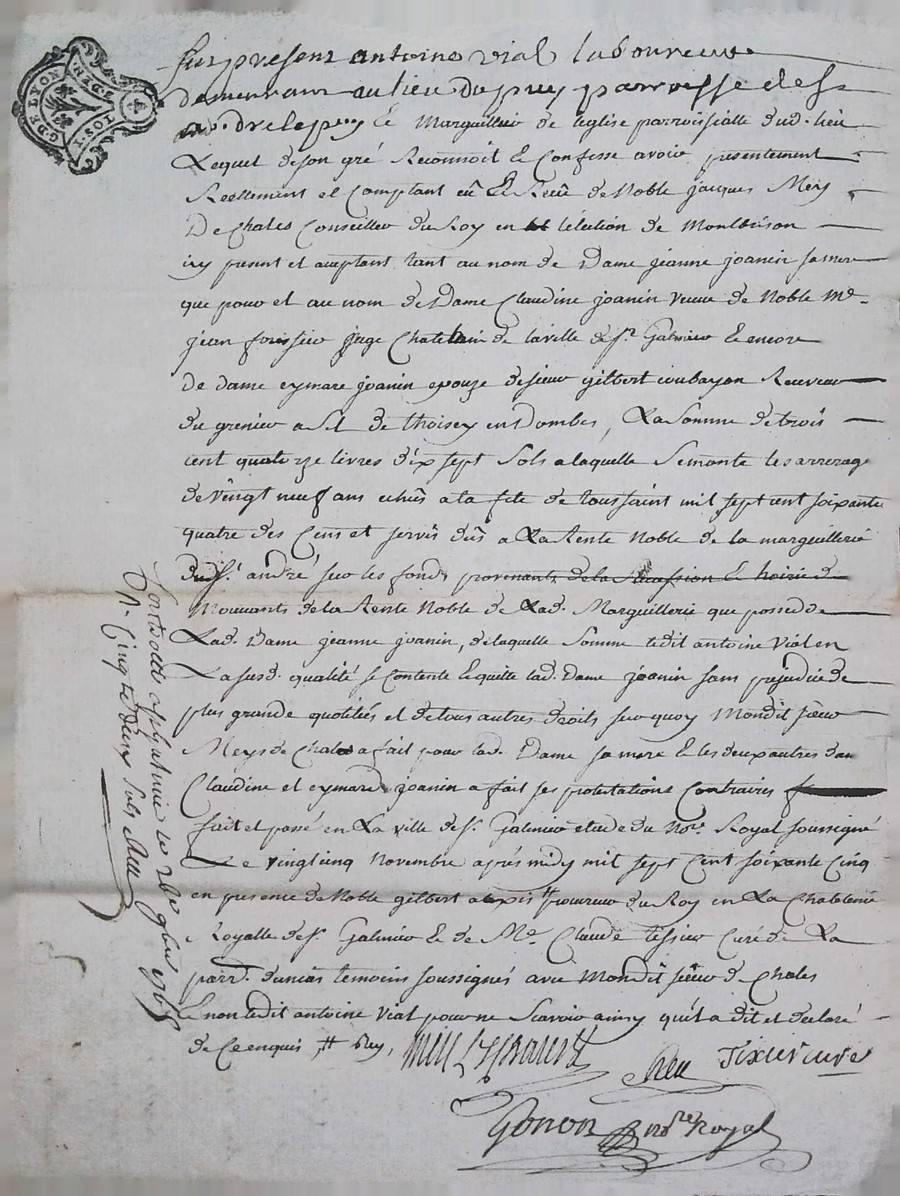 G. DE LYON
1. SOL
DEN
4
fut present antoine vial laboureur
demeurant au lieu du puy parroisse de st
andre le puy & Marguillier de leglise parroissialle dud. lieu
Lequel de son gré Reconnoit & Confesse avoir presentement
Reellement et Comptant eû & Reçû de Noble jacques Meys
De Chales Conseiller du Roy en lélection de Montbrison
icy present et aceptant tant au nom de Dame jeanne joanin sa mere
que pour et au nom de Dame Claudine joanin veuve de Noble Me
jean juge Chatelain de la ville de st Galmier & encore
de dame eymare joanin epouze de sieur gilbert coubayon Receveur
du grenier a Sel de thoisey en Dombes, La Somme de trois
cent quatorze livres dix sept sols a laquelle Se monte les arrerage
de vingt neuf ans echûs a la fête de toussaint mil sept cent soixante
quatre des Cens et servis dûs a La Rente Noble de la marguillerie
dud st. andré sur les fonds provenants de la Succession & hoirie de
Mouvants de la Rente Noble de Lad. Marguillerie que possede
Lad. Dame jeanne joanin, de laquelle somme ledit antoine Vial en
La susd. qualité se Contente & quitte lad. Dame joanin sans prejudice de
plus grande quotités et de tous autres droits sur quoy Mondit sieur
Meys de Chales a fait pour lad. Dame sa mere & les deux autres dam
Claudine et eymare joanin a fait ses protestations Contraires
fait et passé en La ville de st. Galmier etude du Nore. Royal soussigné
Le vingt cinq Novembre après midy mil sept Cent soixante Cinq
en presence de Noble gilbert alexis # procureur du Roy en La Chatelenie
Royalle de st. Galmier & de Me. Claude tissier Curé de La
parr. temoins soussignés avec Mondit sieur de Chales
& non ledit antoine Vial pour ne Scavoir ainsy qu'il a dit et declaré
de Ce enquis # Rey,
Rey Tixier curé
Gonon nore Royal
Controllé a st Galmier le 28e 9bre 1765
R. Cinq te deux sols Rey